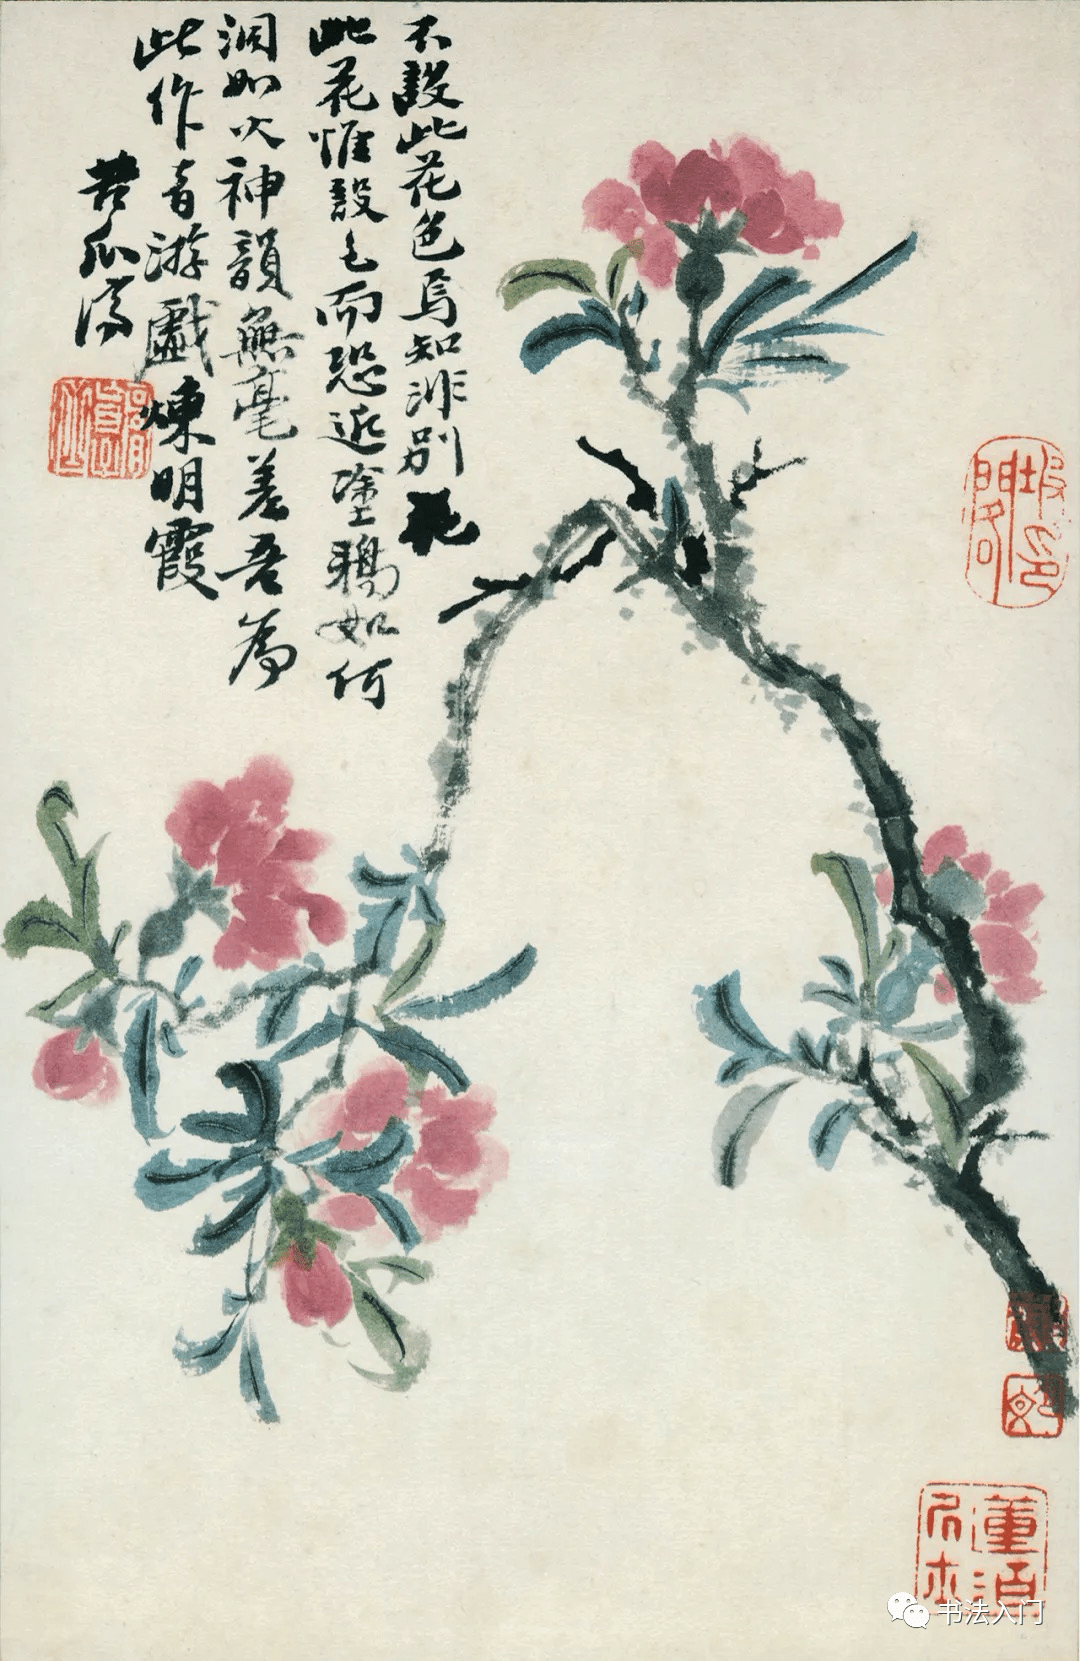 不設此花色焉知非別花
此花惟設色而恐近塗鴉如何
洞如火神韻無毫差吾為
此作游戲煉明霞
苦瓜濟
书法入门